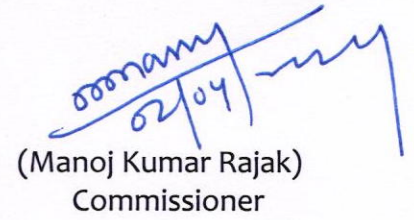 02/04
(Manoj Kumar Rajak)
Commissioner